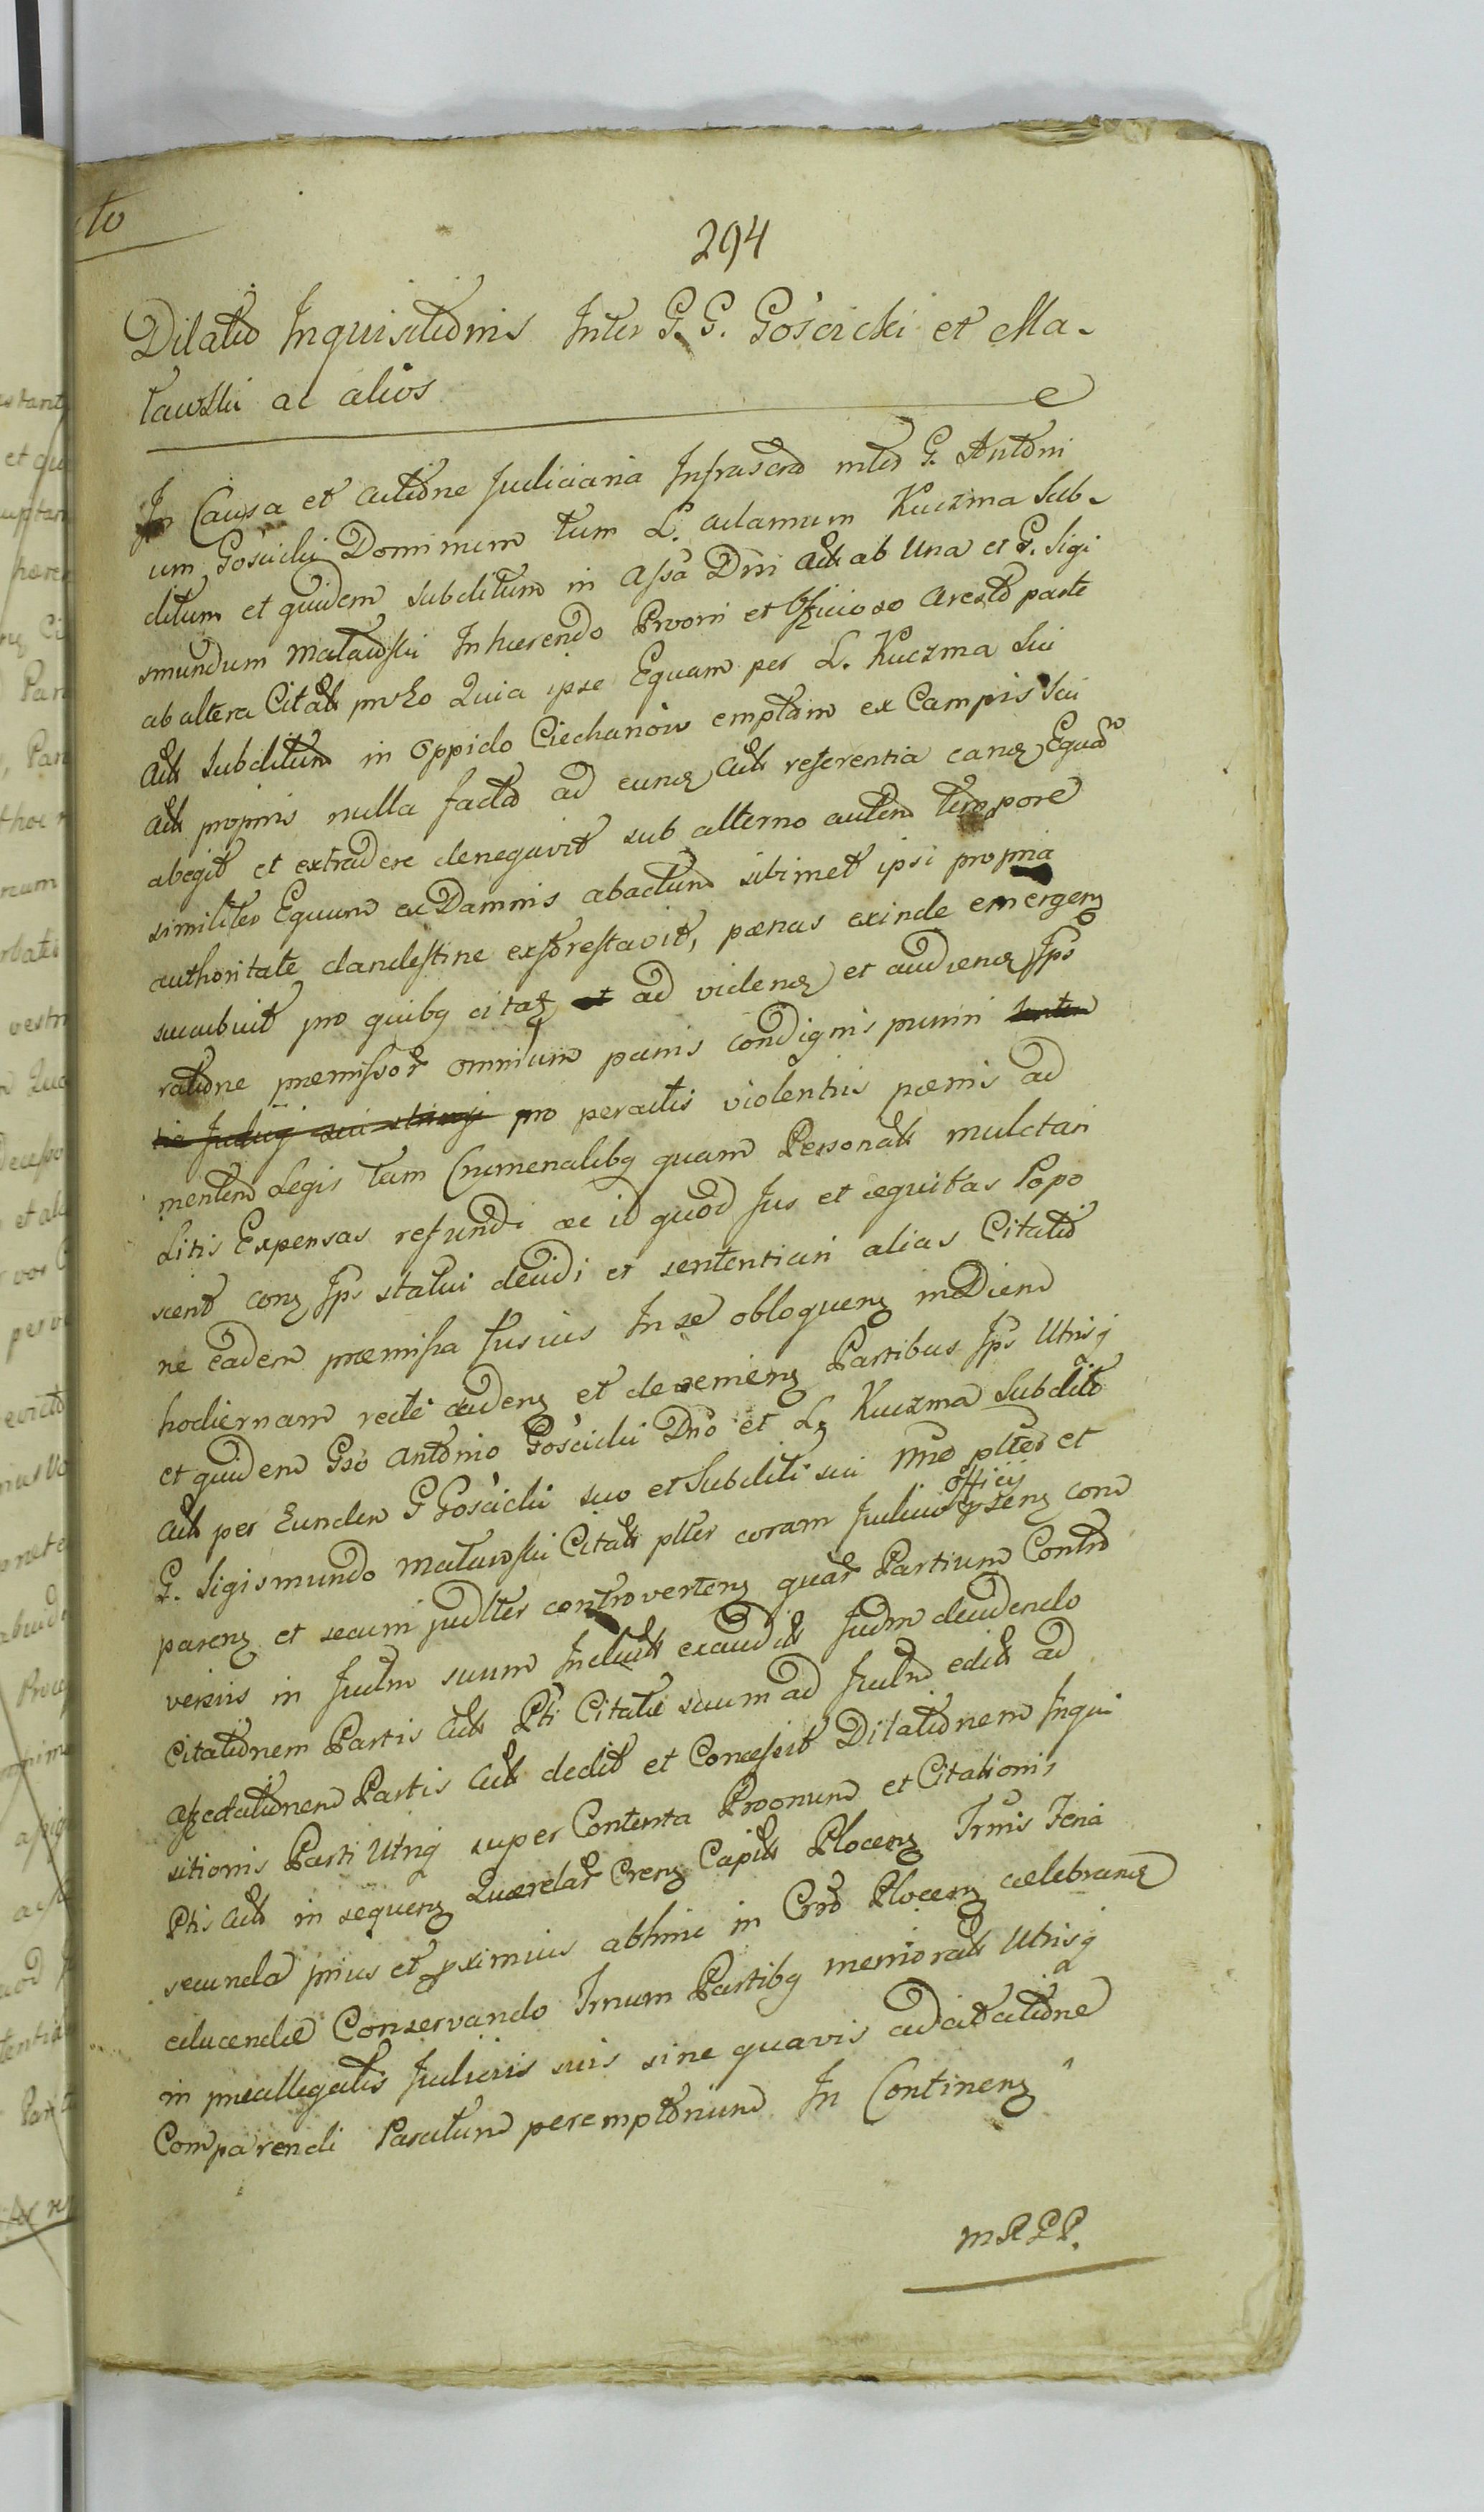 294
Dilatio Inquisitionis Inter G. G. Gościcki et Ma-
tawski ac alios
In Causa et actione Judiciaria Infrascro inter G. Antoni
um Gościcki Dominum tum L. Adamum Kuczma Sub-
ditum et quidem subditum in assa Dni Act ab Una et G. Sigi
smundum Matawski Inhaerendo Proóni et officioso Aresto parte
ab altera Citat Quia ipse Equam per L. Kuczma Sui
Act Subditum in Oppido Ciechanów emptam ex Campis Sui
Act propriis nulla facta ad eunđ Act referentia eanđ Equam
abegit et extradere denegavit sub alterno autem tempore
similiter Equum ex Damnis abactum sibimet ipsi propria
authoritate clandestine extorestavit, paenas exinde emergenȝ
succubuit pro quibq citaȝ ad videnđ et audienđ Ips
ratione praemissor omnium paenis condignis puniri
pro peractis violentiis paenis ad
mentem Legis tam Crumenalibq quam Personalt mulctari
Litis Expensas refundi ac id quod Jus et aequitas Popo
scent conȝ Ips statui decidi et sententiari alias Citatio
ne eadem praemissa fusius In se obloquenȝ in diem
hodiernam recte cadenȝ et devenienȝ Partibus Ips Utrisq
et quidem Gso Antonio Gościcki Dno et Lȝ Kuczma Subdito
Act per Eundem G Gościcki suo et Subditi sui nne plter et
G. Sigismundo Matawski Citat plter coram Judicio officij psenȝ com
parenȝ et secum judlter controvertenȝ quar Partium Contro
versiis in Judm suum Induct exaudit Judm decidendo
Citationem Partis Act Pti Citatae suum ad Judm edit ad
affectationem Partis Act dedit et Concessit Dilationem Inqui
sitionis Parti Utriq super Contenta Proonum et Citationis
Ptis Act in sequenȝ Querelar Crenȝ Capit Plocenȝ Trmis Feria
secunda prius et pximius abhinc in Crro Plocenȝ celebranđ
aducendae Conservando Trnum Partibq memorat Utrisq
in preallegatis Judiciis suis sine quavis adcitatione
Comparendi Paratum peremptorium In Continenȝ
MPPP.